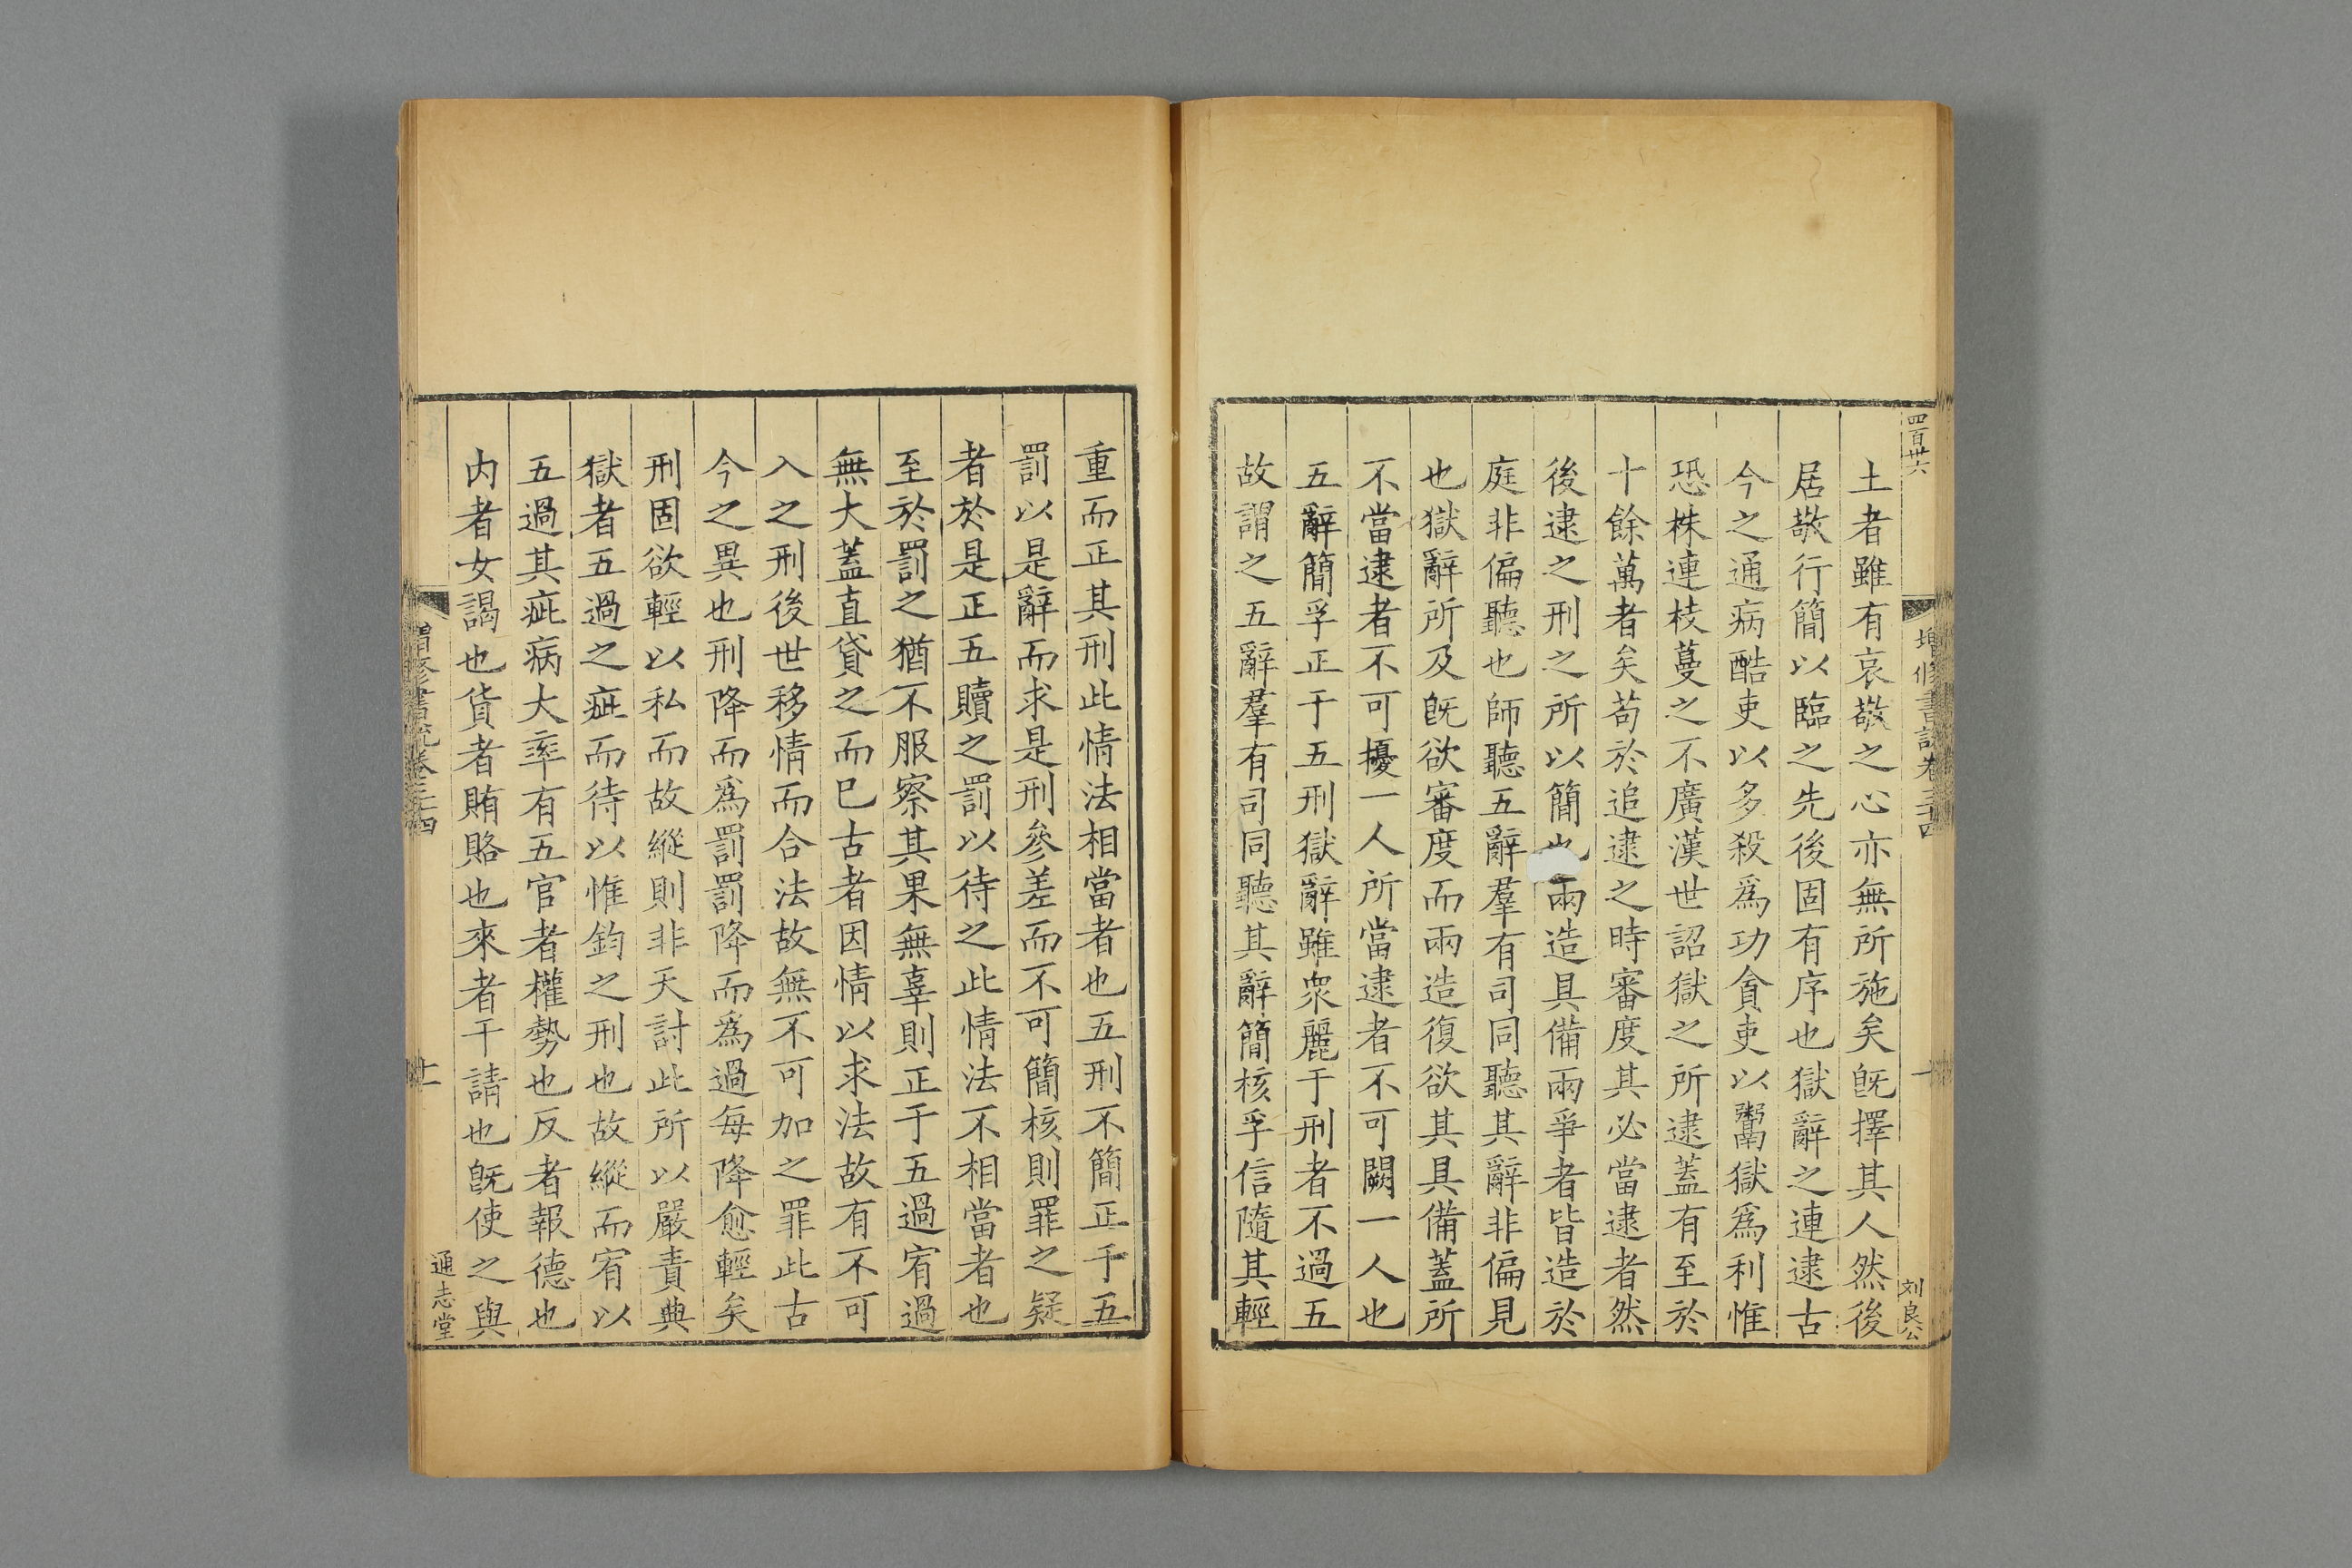 四百卅六
増修書説卷三十四
刘良公
土者雖有哀敬之心亦無所施矣旣擇其人然後
居敬行簡以臨之先後固有序也獄辭之連逮古
今之通病酷吏以多殺爲功貪吏以鬻獄爲利惟
恐株連枝蔓之不廣漢世詔獄之所逮蓋有至於
十餘萬者矣苟於追逮之時審度其必當逮者然
後逮之刑之所以簡也兩造具備兩爭者皆造於
庭非偏聽也師聽五辭羣有司同聽其辭非偏見
也獄辭所及旣欲審度而兩造復欲其具備蓋所
不當逮者不可擾一人所當逮者不可闕一人也
五辭簡孚正于五刑獄辭雖衆麗于刑者不過五
故謂之五辭羣有司同聽其辭簡核孚信隨其輕
重而正其刑此情法相當者也五刑不簡正于五
罰以是辭而求是刑參差而不可簡核則罪之疑
者於是正五贖之罰以待之此情法不相當者也
至於罰之猶不服察其果無辜則正于五過宥過
無大蓋直貸之而已古者因情以求法故有不可
入之刑後世移情而合法故無不可加之罪此古
今之異也刑降而爲罰罰降而爲過每降愈輕矣
刑固欲輕以私而故縱則非天討此所以嚴責典
獄者五過之疵而待以惟鈞之刑也故縱而宥以
五過其疵病大率有五官者權勢也反者報德也
内者女謁也貨者賄賂也來者干請也旣使之與
増修書説卷三十四
十一
通志堂